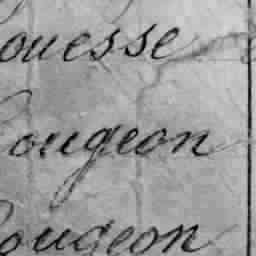 ouesse
ougeon
ougeon